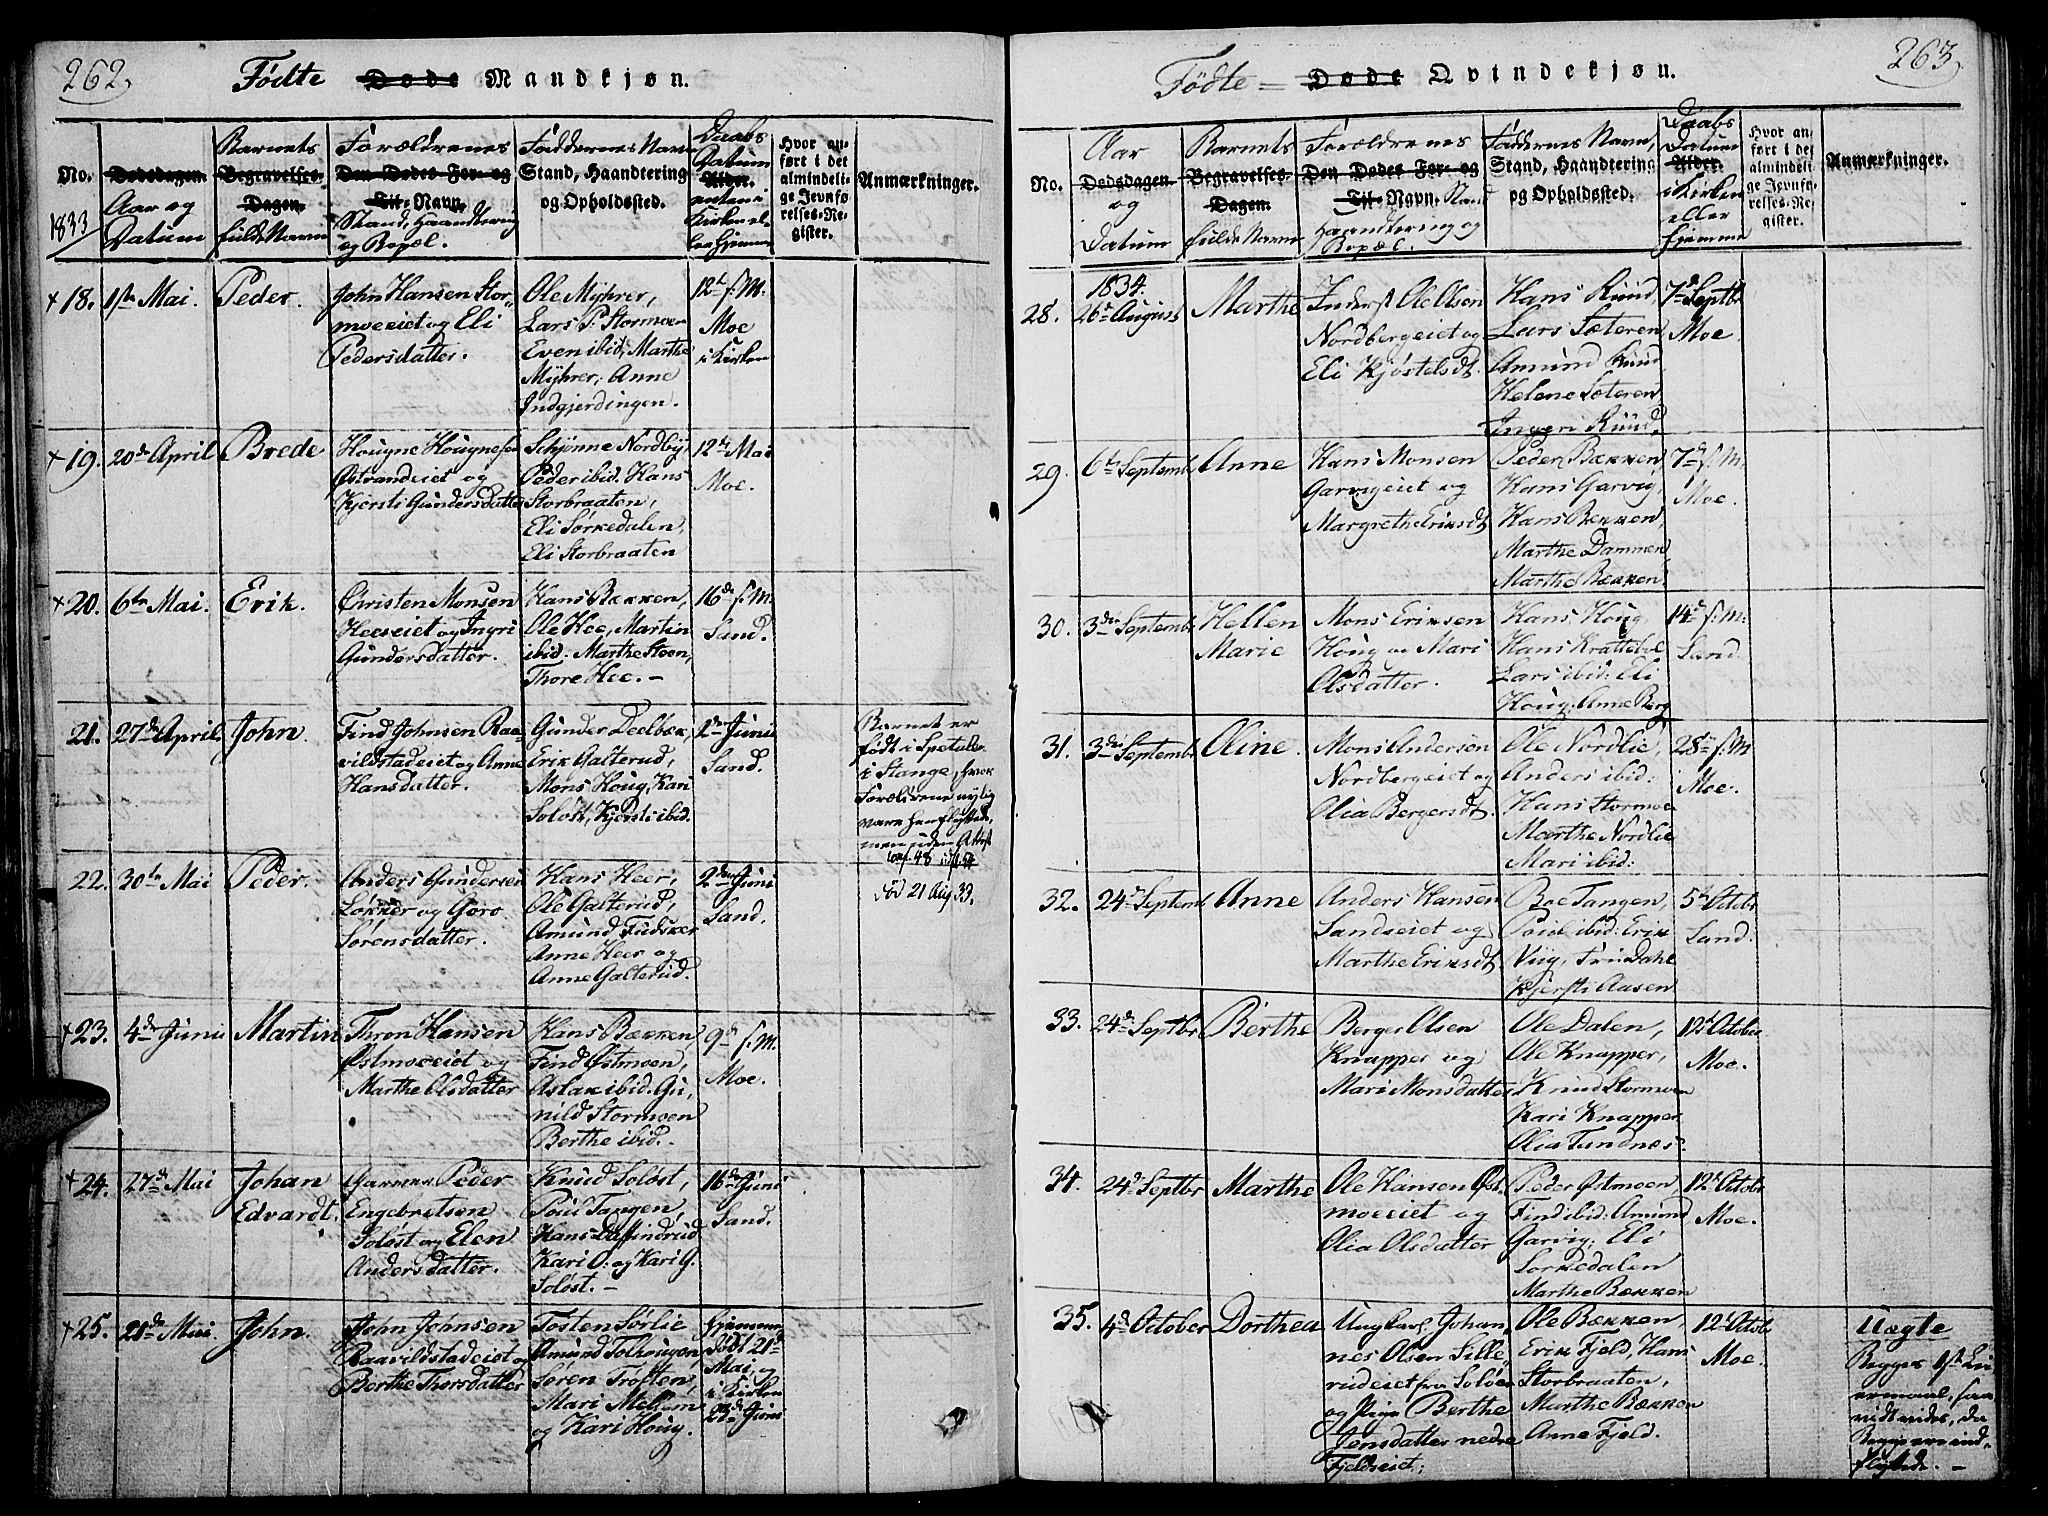 262.
Fødte Døde Mandkjøn.
No.
1833
Dødsdagen.
Aar og
Datum
Barnets
Begravelses-
Dagen.
fulde Navn
Forældrenes
Den Dødes For- og
Til-Navn.
Stand, Haandtering
og Bopæl.
Faddernes Navn
Stand, Haandtering
og Opholdssted.
Daabs
Datum
Alder.
Hvor an-
ført i det
almindeli-
ge Jevnfø-
relses-Re-
gister.
Anmærkninger.
+ 18.
1ste Mai.
Peder.
John Hansen Stor-
moeeiet og Eli
Pedersdatter.
Ole Myhrer,
Lars P. Stormoen
Even ibid, Marthe
Myhrer, Anne
Indgjerdingen.
12te s. M.
Moe
i Kirken
+ 19.
20de April
Brede
Hougne Hougnesen
Østrandeiet og
Kjersti Gundersdatter
Schjønne Nordby
Peder ibid. Hans
Storbraaten,
Eli Sørkedalen,
Eli Storbraaten
12te Mai
Moe.
+ 20.
6te Mai.
Erik.
Christen Monsen
Heeseiet og Ingri
Gundersdatter.
Hans Bækken,
Ole Hee, Martin
ibid. Marthe Steen,
Thore Hee. –
16de s. M.
Sand.
21.
27de April.
John.
Find Johnsen Raa-
vildstadeiet og Anne
Hansdatter.
Gunder Deelbæk,
Erik Galterud,
Mons Houg, Kari
Soløst, Kjersti ibid.
2den Juni
Sand.
Barnet er
født i Spetalen
i Stange, hvor
Forældrene nylig
vare henflyttede,
men uden Attest
conf. 48
22.
30te Mai
Peder.
Anders Gundersen
Løkker og Goro
Sørensdatter.
Hans Heer,
Ole Galterud,
Amund Fudsker
Anne Heer og
Anne Galterud.
2den Juni
Sand.
død 21 Aug 33.
+ 23.
4de Juni
Martin
Thron Hansen
Østmoeeiet og
Marthe Olsdatter
Hans Bækken
Find Østmoen,
Aslak ibid. Gu-
nild Stormoen
Berthe ibid. –
9de s. M.
Moe.
+ 24.
27de Mai
Johan
Edvardt.
Garver Peder
Engebretsen
Soløst og Elen
Andersdatter.
Knud Soløst,
Poul Tangen,
Hans Dæffindrud
Kari O. og Kari G.
Soløst. –
16de Juni
Sand.
+ 25.
21de Mai.
John.
John Johnsen
Raavildstadeiet og
Berthe Thorsdatter
Tosten Sørlie
Amund Tolhougen,
Søren Trosten,
Mari Mellem
og Kari Houg.
Hjemme
døbt 21de
Mai, og
i Kirken
Juni
263.
Fødte = Døde Qvindekjøn.
No.
Aar
Dødsdagen.
og
Datum
Barnets
Begravelses-
Dagen.
fulde Navn
Forældrenes
Den Dødes For- og
Til-Navn. Stand
Haandtering og
Bopæl.
Faddernes Navn,
Stand, Haandtering
og Opholdssted.
Daabs
Datum
Alder.
i Kirken
eller
hjemme
Hvor an-
ført i det
almindeli-
ge Jevnfø-
relses-Re-
gister.
Anmærkninger.
28.
1834.
26de August
Marthe
Inderst Ole Olsen
Nordbergeiet og
Eli Kjøstelsdt.
Hans Ruud
Lars Sæteren
Amund Ruud
Helene Sæteren
Ingeri Ruud.
7de Septbr
Moe.
29.
6te Septemb
Anne
Hans Monsen
Garvigeiet og
Margrethe Eriksdt.
Peder Bækken
Hans Garvig,
Hans Bækken,
Marthe Dammen,
Marthe Bækken,
7de s. M.
Moe.
30.
3die Septembr
Hellen
Marie
Mons Eriksen
Houg og Mari
Olsdatter.
Hans Houg,
Hans Krattebøl
Lars ibid: Eli
Houg, Anne Berg
14de s. M.
Sand.
31.
3die Septembr
Oline.
Mons Andersen
Nordbergeiet og
Olia Bergersdt.
Ole Nordlie,
Anders ibid:
Hans Stormoe
Marthe Nordlie
Mari ibid:
28de s. M
Moe.
32.
24de Septemb
Anne
Anders Hansen
Sandseiet og
Marthe Eriksdt.
Boe Tangen,
Poul ibid: Erik
Viig, Dahl
Kjersti Aasen
5te Octobr
Sand.
33.
24de Septbr
Berthe
Berger Olsen
Knapper og
Mari Monsdatter
Ole Dalen,
Ole Knapper,
Knud Stormoen
Kari Knapper
Olia Tundnæs.
12te October
Moe.
34.
24de Septbr
Marthe
Ole Hansen Øst-
moeeiet og
Olia Olsdatter
Peder Østmoen,
Find ibid: Amund
Garvig; Eli
Sørkedalen
Marthe Bækken
12te Octobr
Moe.
35.
4de October
Dorthea
Ungkarl Johan-
nes Olsen Lille-
rudeiet fra Soløer
og Pige Berthe
Jensdatter nedre
Fjeldseiet;
Ole Bækken,
Erik Fjeld, Hans
Storbraaten,
Marthe Bækken
Anne Fjeld.
12te Octob
Moe.
Uægte
Begges 1ste Lei-
ermaal, saa
vidt vides, da
Begge ere ind-
flyttede. –